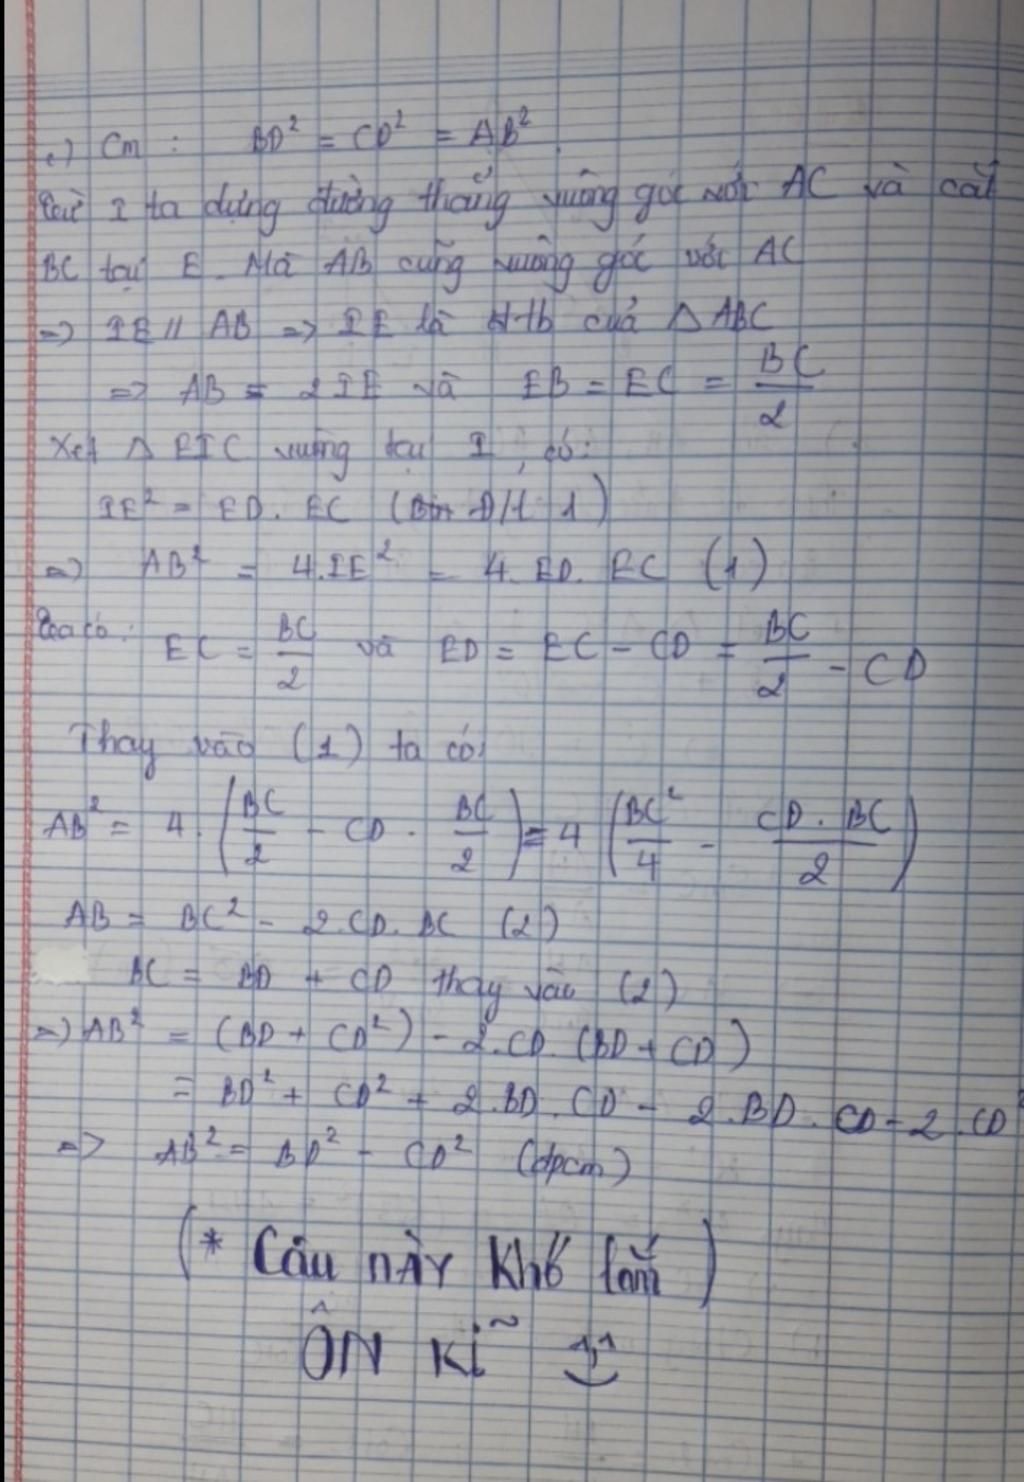 c) Cm : BD² = CD² = AB².
Từ I ta dựng đường thẳng vuông góc với AC và cắt
BC tại E. Mà AB cũng vuông góc với AC
=> IE // AB => IE là đtb của △ ABC
=> AB = 2 IE và EB = EC = BC/2
Xét △ EIC vuông tại I, có:
IE² = ED. EC (Đ/l 1)
=> AB² = 4.IE² = 4. ED. EC (1)
Ta có: EC = BC/2 và ED = EC - CD = BC/2 - CD
Thay vào (1) ta có:
AB² = 4. (BC/2 - CD . BC/2) = 4 (BC²/4 - CD . BC/2)
AB = BC² - 2.CD. BC (2)
BC = BD + CD thay vào (2)
=> AB² = (BD + CD²) - 2.CD. (BD + CD)
= BD² + CD² + 2.BD. CD - 2.BD. CD - 2.CD²
=> AB² = BD² - CD² (đpcm)
(* Câu này khó lắm)
ÔN kĩ